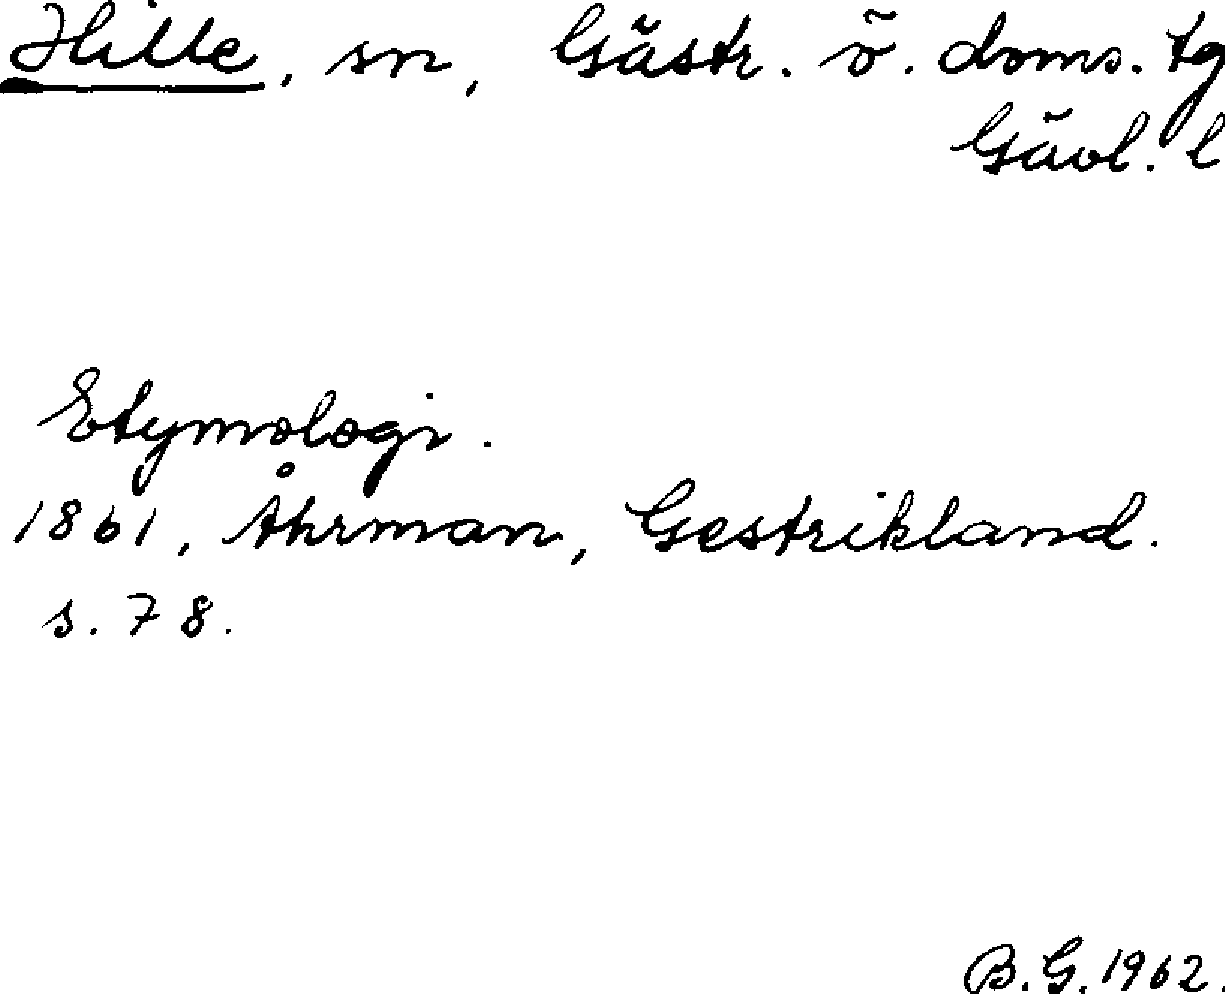 Hille, sn, Gästr. ö. doms. tg
Gävl. l
Etymologi.
1861, Åhrman, Gestrikland.
s. 78.
B.G. 1962.